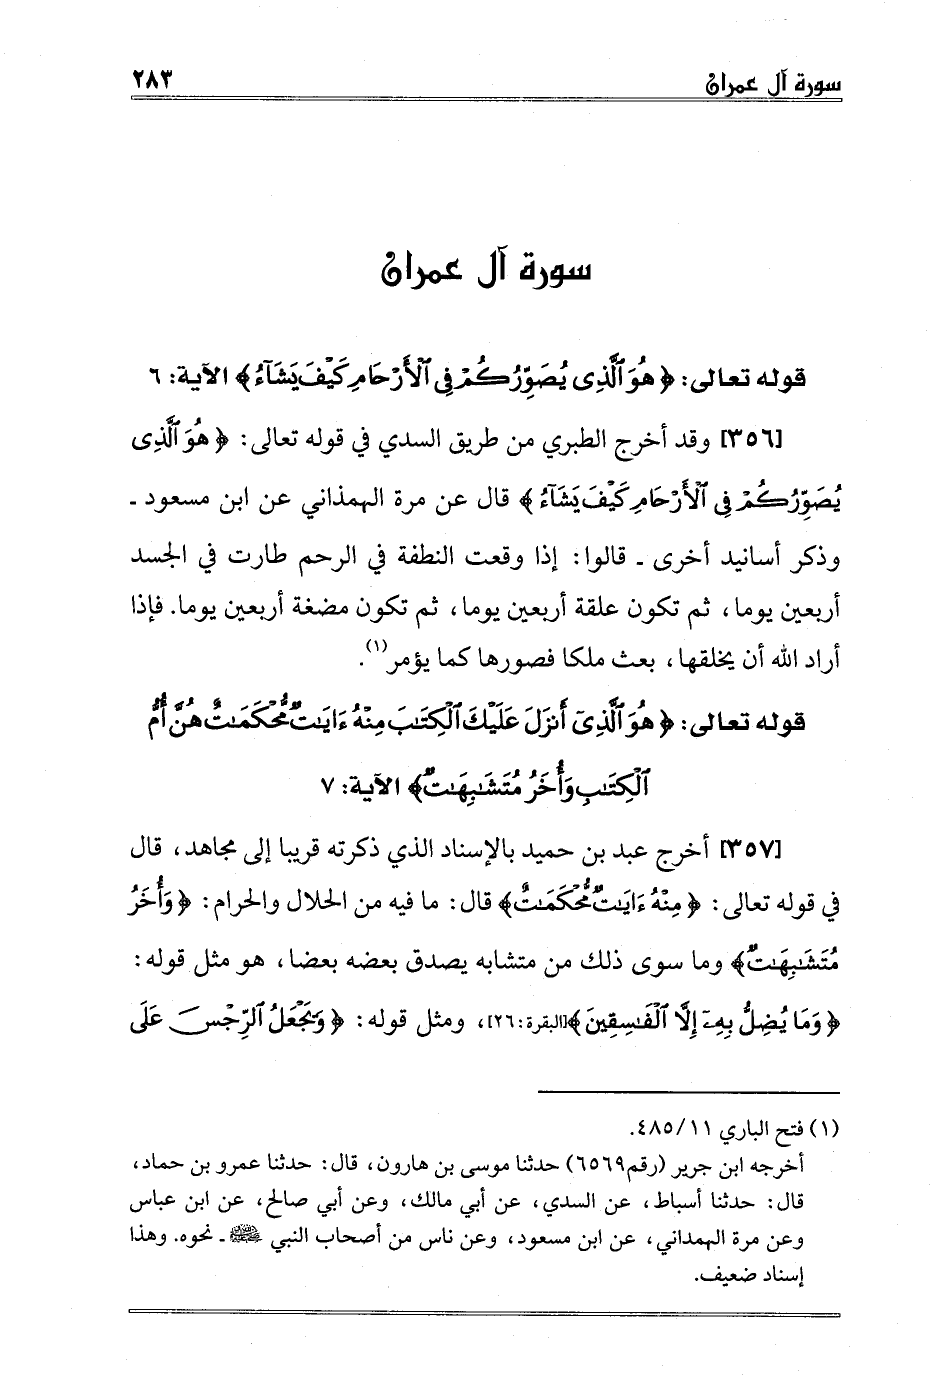 سورة آل عمران ٢٨٣
سورة آل عمران
قوله تعالى: ﴿هُوَ ٱلَّذِى يُصَوِّرُكُمْ فِى ٱلْأَرْحَامِ كَيْفَ يَشَآءُ﴾ الآية: ٦
[٣٥٦] وقد أخرج الطبري من طريق السدي في قوله تعالى: ﴿هُوَ ٱلَّذِى
يُصَوِّرُكُمْ فِى ٱلْأَرْحَامِ كَيْفَ يَشَآءُ﴾ قال عن مرة الهمذاني عن ابن مسعود ـ
وذكر أسانيد أخرى ـ قالوا: إذا وقعت النطفة في الرحم طارت في الجسد
أربعين يوما، ثم تكون علقة أربعين يوما، ثم تكون مضغة أربعين يوما. فإذا
أراد الله أن يخلقها، بعث ملكا فصورها كما يؤمر(١).
قوله تعالى: ﴿هُوَ ٱلَّذِىٓ أَنزَلَ عَلَيْكَ ٱلْكِتَٰبَ مِنْهُ ءَايَٰتٌ مُّحْكَمَٰتٌ هُنَّ أُمُّ
ٱلْكِتَٰبِ وَأُخَرُ مُتَشَٰبِهَٰتٌ﴾ الآية: ٧
[٣٥٧] أخرج عبد بن حميد بالإسناد الذي ذكرته قريبا إلى مجاهد، قال
في قوله تعالى: ﴿مِنْهُ ءَايَٰتٌ مُّحْكَمَٰتٌ﴾ قال: ما فيه من الحلال والحرام: ﴿وَأُخَرُ
مُتَشَٰبِهَٰتٌ﴾ وما سوى ذلك من متشابه يصدق بعضه بعضا، هو مثل قوله:
﴿وَمَا يُضِلُّ بِهِۦٓ إِلَّا ٱلْفَٰسِقِينَ﴾ [البقرة: ٢٦]، ومثل قوله: ﴿وَيَجْعَلُ ٱلرِّجْسَ عَلَى
(١) فتح الباري ٤٨٥/١١.
أخرجه ابن جرير (رقم٦٥٦٩) حدثنا موسى بن هارون، قال: حدثنا عمرو بن حماد،
قال: حدثنا أسباط، عن السدي، عن أبي مالك، وعن أبي صالح، عن ابن عباس
وعن مرة الهمداني، عن ابن مسعود، وعن ناس من أصحاب النبي ﷺ ـ نحوه. وهذا
إسناد ضعيف.